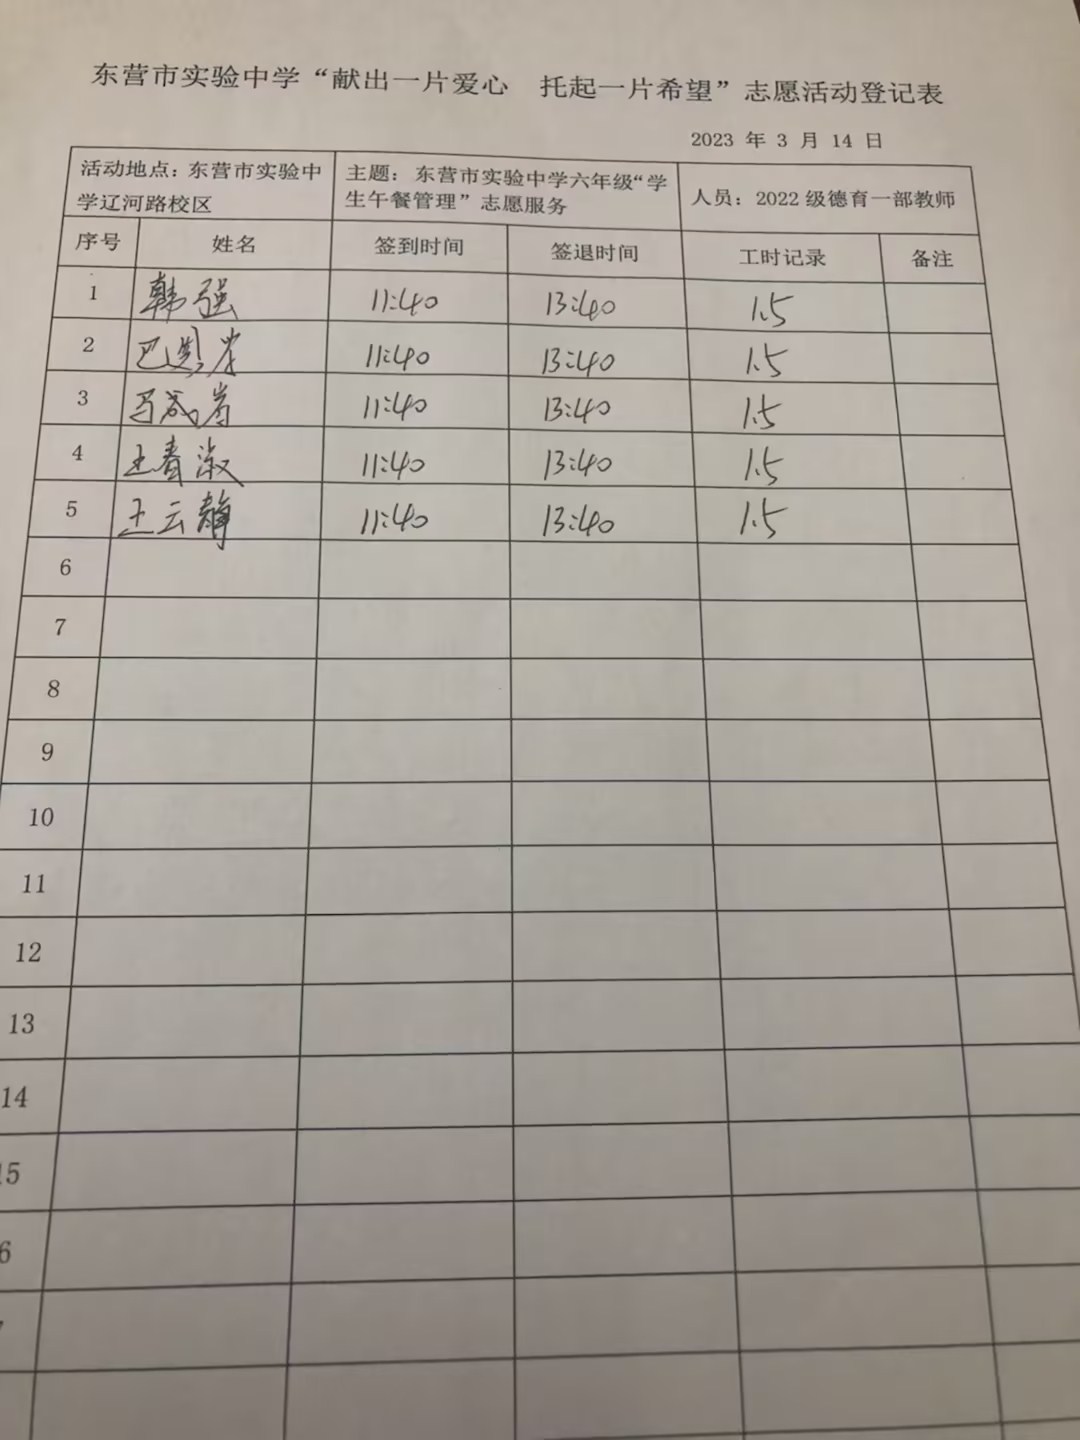 东营市实验中学“献出一片爱心 托起一片希望”志愿活动登记表
2023 年 3 月 14 日
活动地点：东营市实验中
学辽河路校区
主题：东营市实验中学六年级“学
生午餐管理”志愿服务
人员：2022 级德育一部教师
序号 姓名 签到时间 签退时间 工时记录 备注
1 韩强 11:40 13:40 1.5
2 11:40 13:40 1.5
3 11:40 13:40 1.5
4 王春淑 11:40 13:40 1.5
5 王云静 11:40 13:40 1.5
6
7
8
9
10
11
12
13
14
15
6